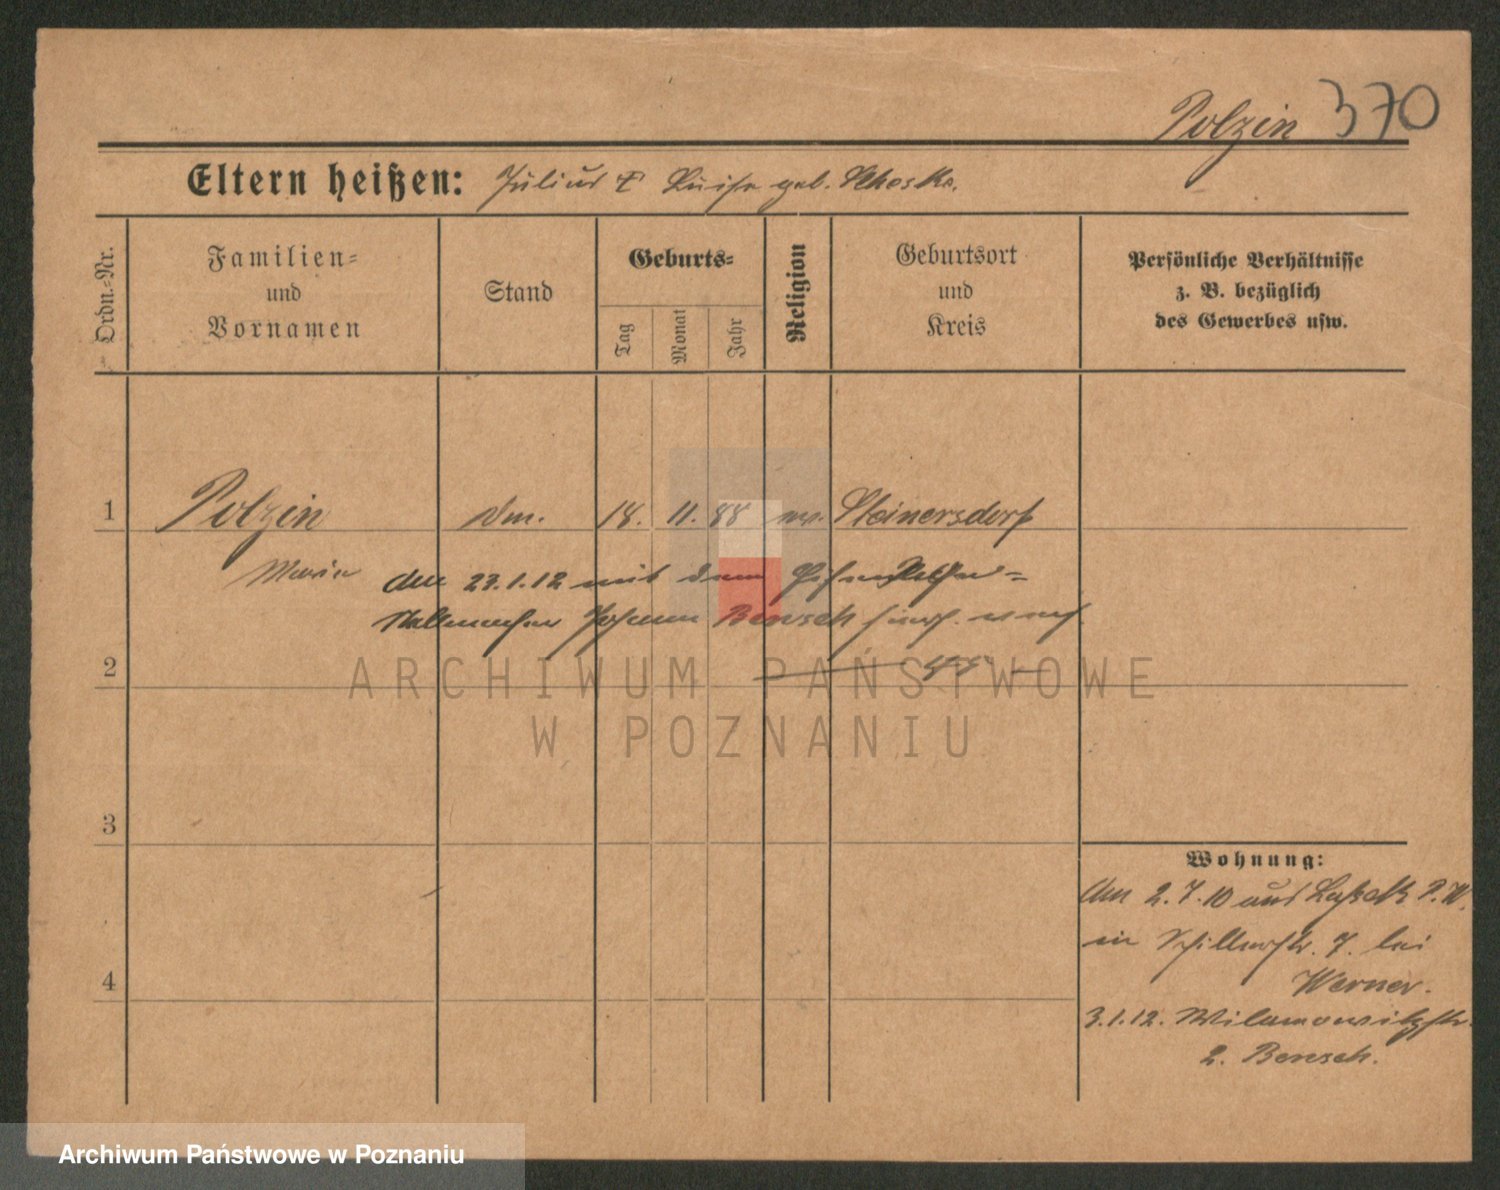 Polzin 370
Eltern heißen: Julius & Luise geb. Scheske.
Ordn.-Nr.
Familien-
und
Vornamen
Stand
Geburts-
Tag
Monat
Jahr
Religion
Geburtsort
und
Kreis
Persönliche Verhältnisse
z. B. bezüglich
des Gewerbes usw.
1 Polzin 18. 11. 88 Steinersdorf
Marie den 23.1.12 mit dem
Johann Bensch
2
3
4
Wohnung:
Am 2.7.10 aus P. W.
in Schillerstr. 7. bei
Werner.
3.1.12. Wilamowitzstr.
2. Bensch.
ARCHIWUM PAŃSTWOWE
W POZNANIU
Archiwum Państwowe w Poznaniu